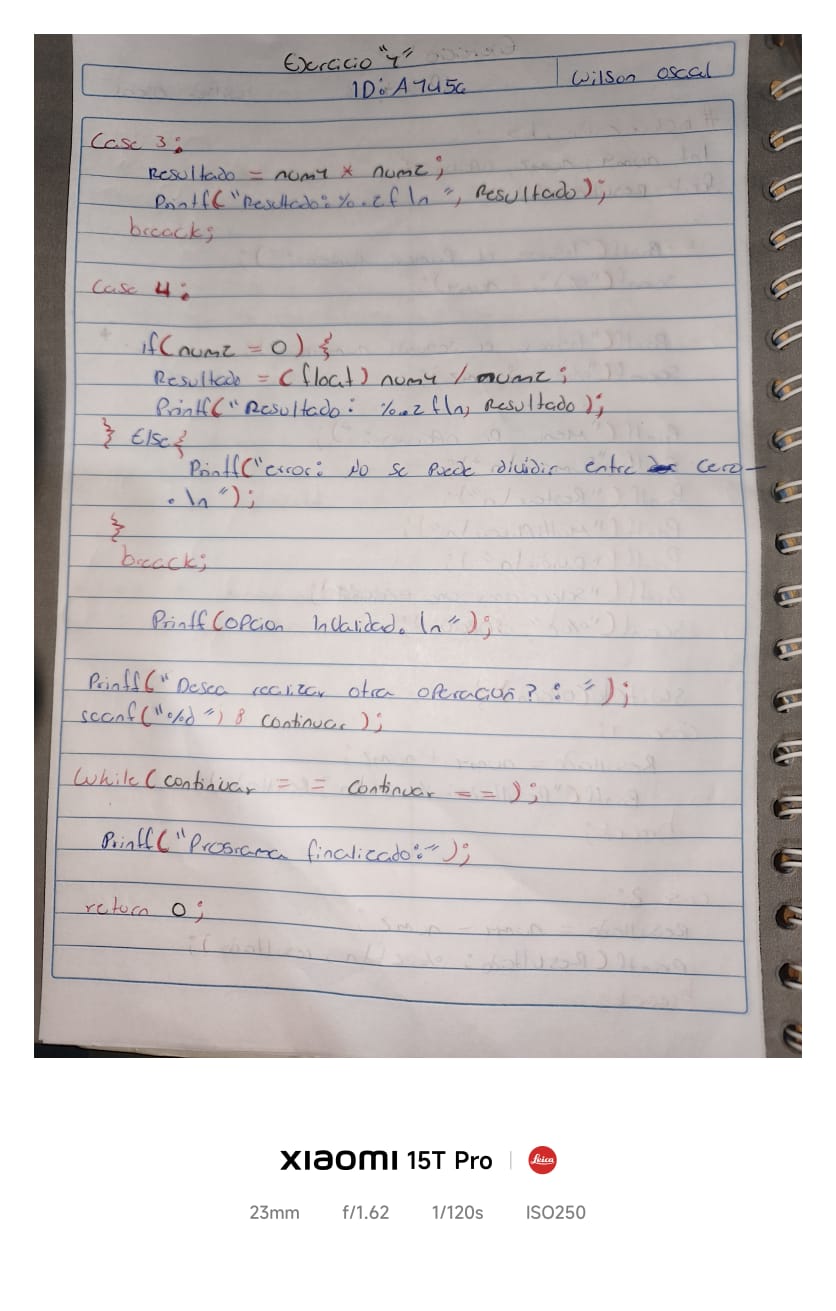 Exercicio "1"
ID: A1456
Wilson oscal
Case 3:
Resultado = num1 * num2;
Printf("Resultado: %.2f \n ", Resultado);
breack;
Case 4:
if(num2 = 0) {
Resultado = (float) num1 / num2;
Printf("Resultado: %.2f\n, Resultado);
} Else{
Printf("error: No se Puede dividir entre cero
. \n ");
}
breack;
Printf(opcion Invalidad. \n");
Printf(" Desea realizar otra operación? : ");
scanf("%d ") & continuar );
While(continuar = = continuar = =);
Printf("Programa finalizado:");
return 0;
XIAOMI 15T Pro | Leica
23mm f/1.62 1/120s ISO250